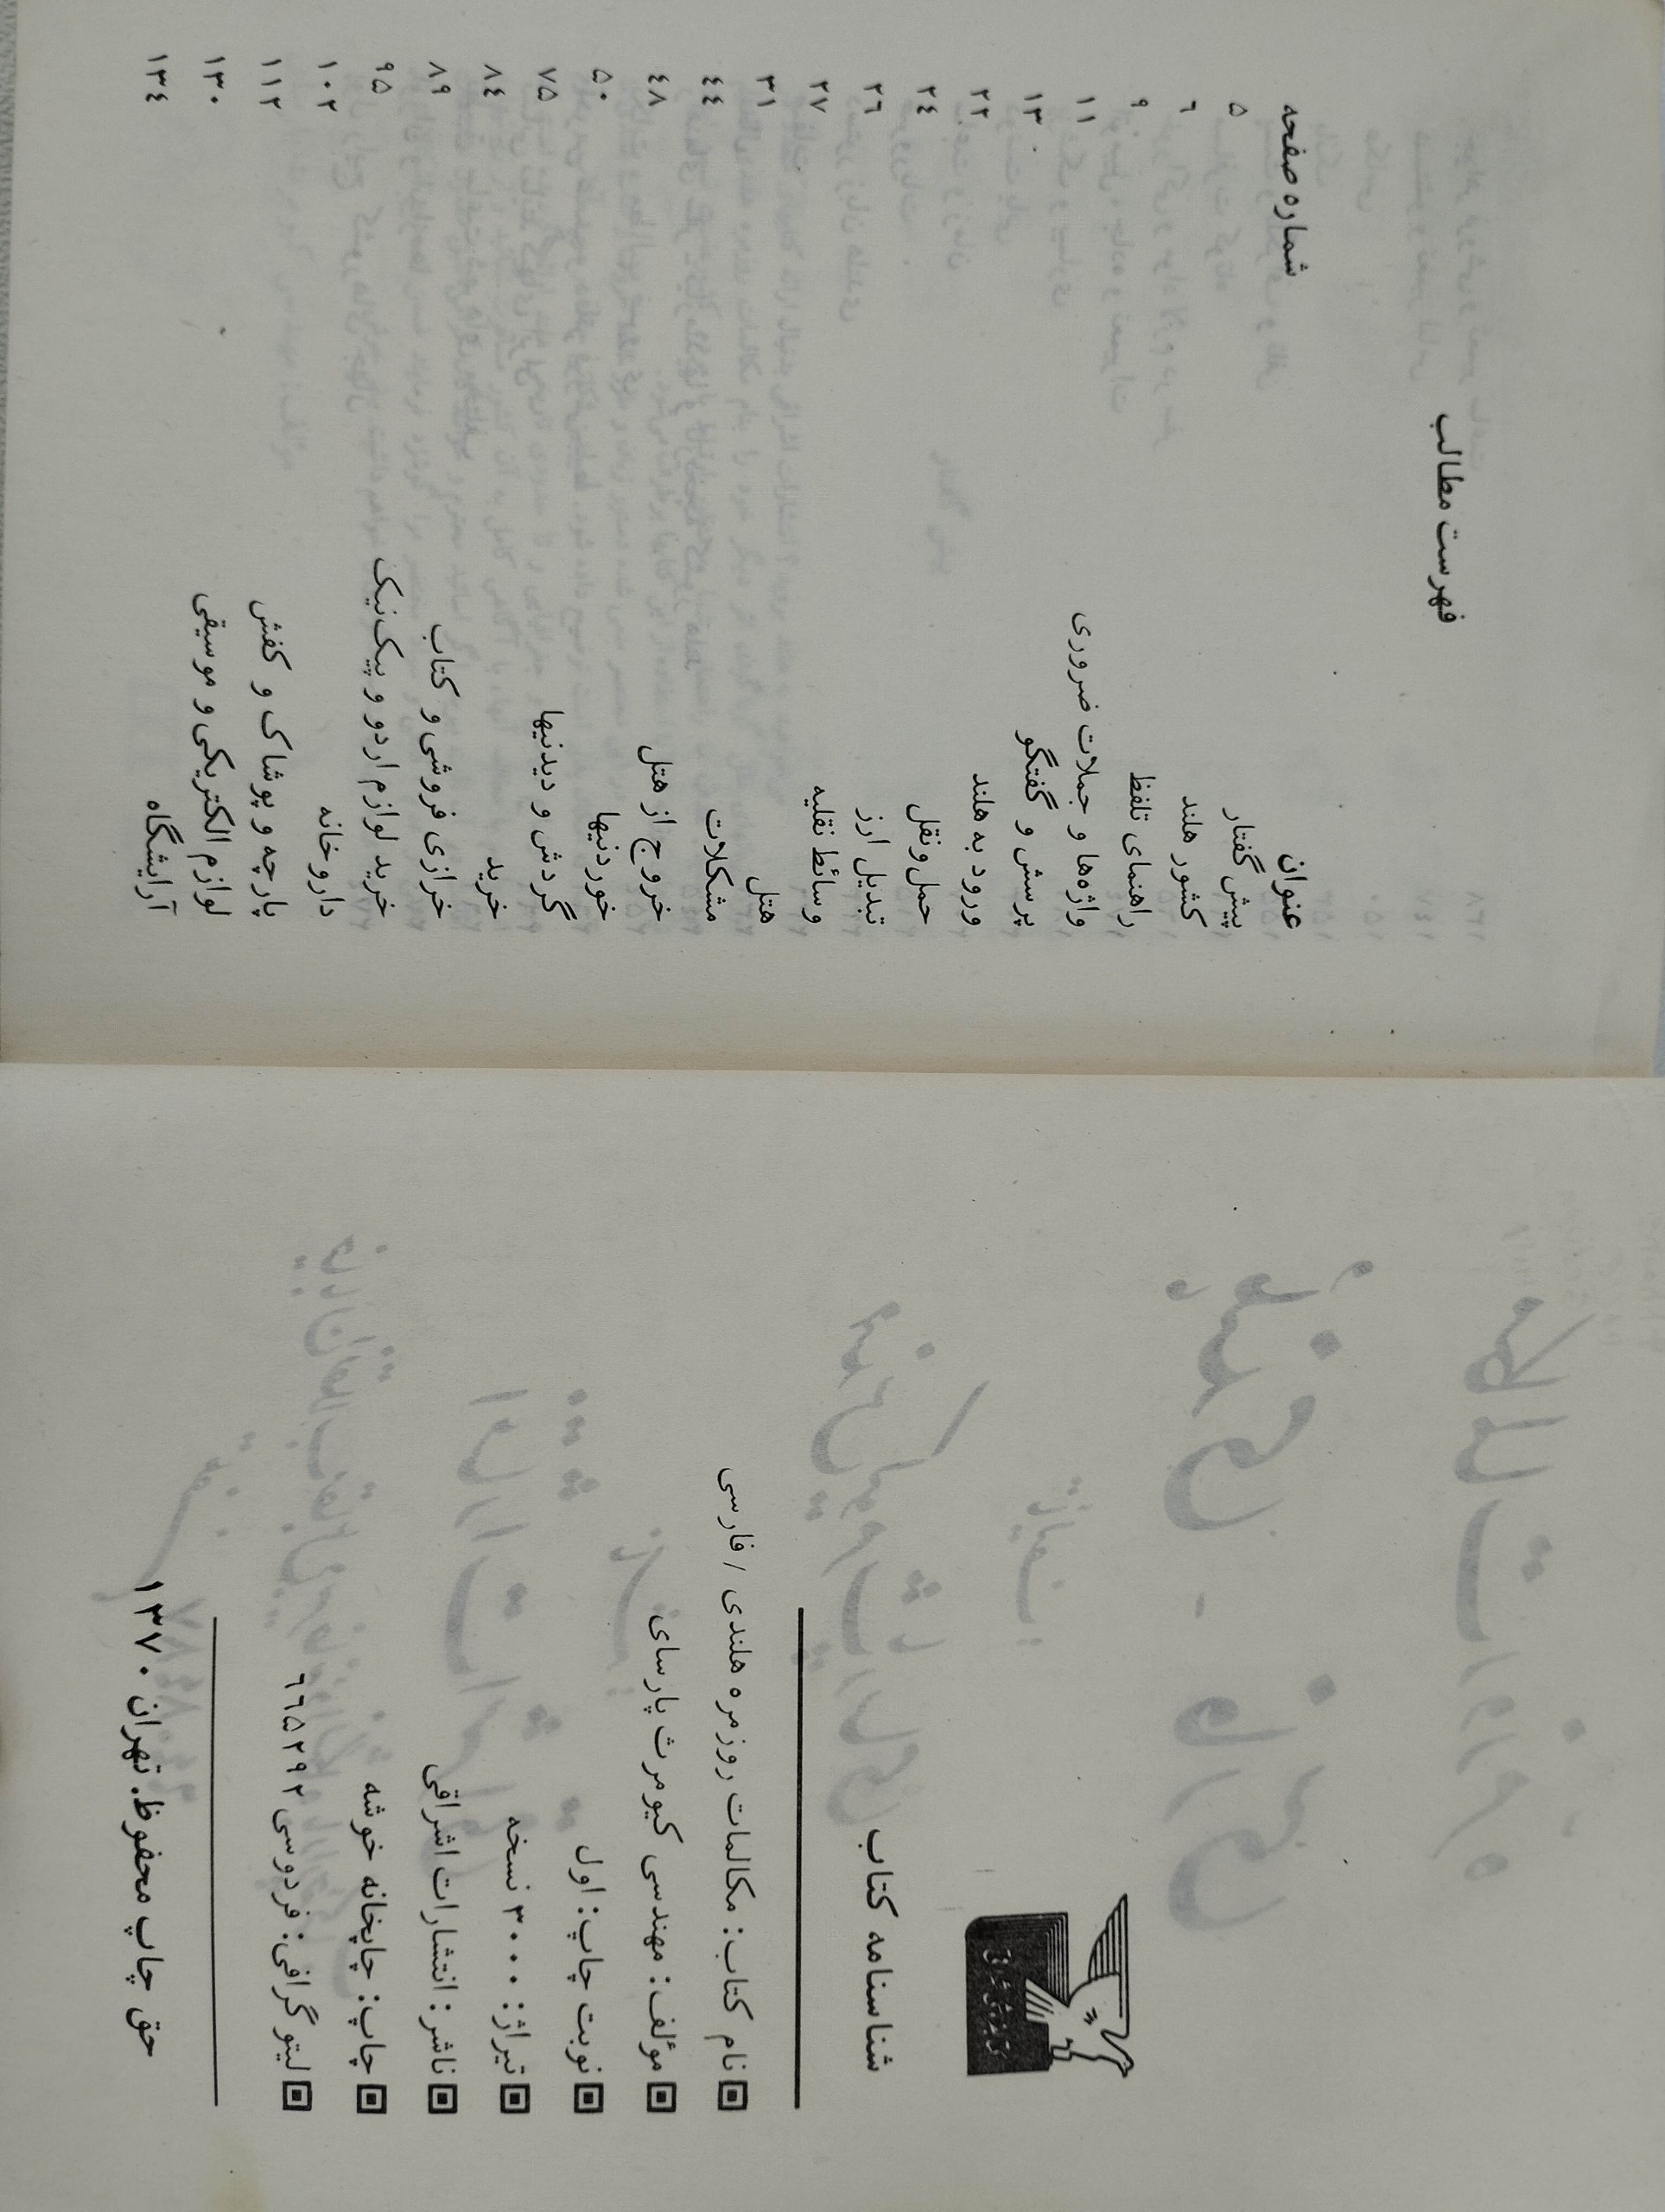 شناسنامه کتاب
نام کتاب: مکالمات روزمره هلندی / فارسی
مؤلف: مهندسی کیومرث پارسای
نوبت چاپ: اول
تیراژ: ۳۰۰۰ نسخه
ناشر: انتشارات اشراقی
چاپ: چاپخانه خوشه
لیتوگرافی: فردوسی ۶۶۵۲۹۲
حق چاپ محفوظ. تهران ۱۳۷۰
فهرست مطالب
عنوان شماره صفحه
پیش گفتار ۵
کشور هلند ۶
راهنمای تلفظ ۹
واژه‌ها و جملات ضروری ۱۱
پرسش و گفتگو ۱۳
ورود به هلند ۲۲
حمل و نقل ۲۴
تبدیل ارز ۲۶
وسائط نقلیه ۲۷
هتل ۳۱
مشکلات ۴۴
خروج از هتل ۴۸
خوردنیها ۵۰
گردش و دیدنیها ۷۵
خرید ۸۴
خرازی فروشی و کتاب ۸۹
خرید لوازم اردو و پیک‌نیک ۹۵
داروخانه ۱۰۲
پارچه و پوشاک و کفش ۱۱۲
لوازم الکتریکی و موسیقی ۱۳۰
آرایشگاه ۱۳۴